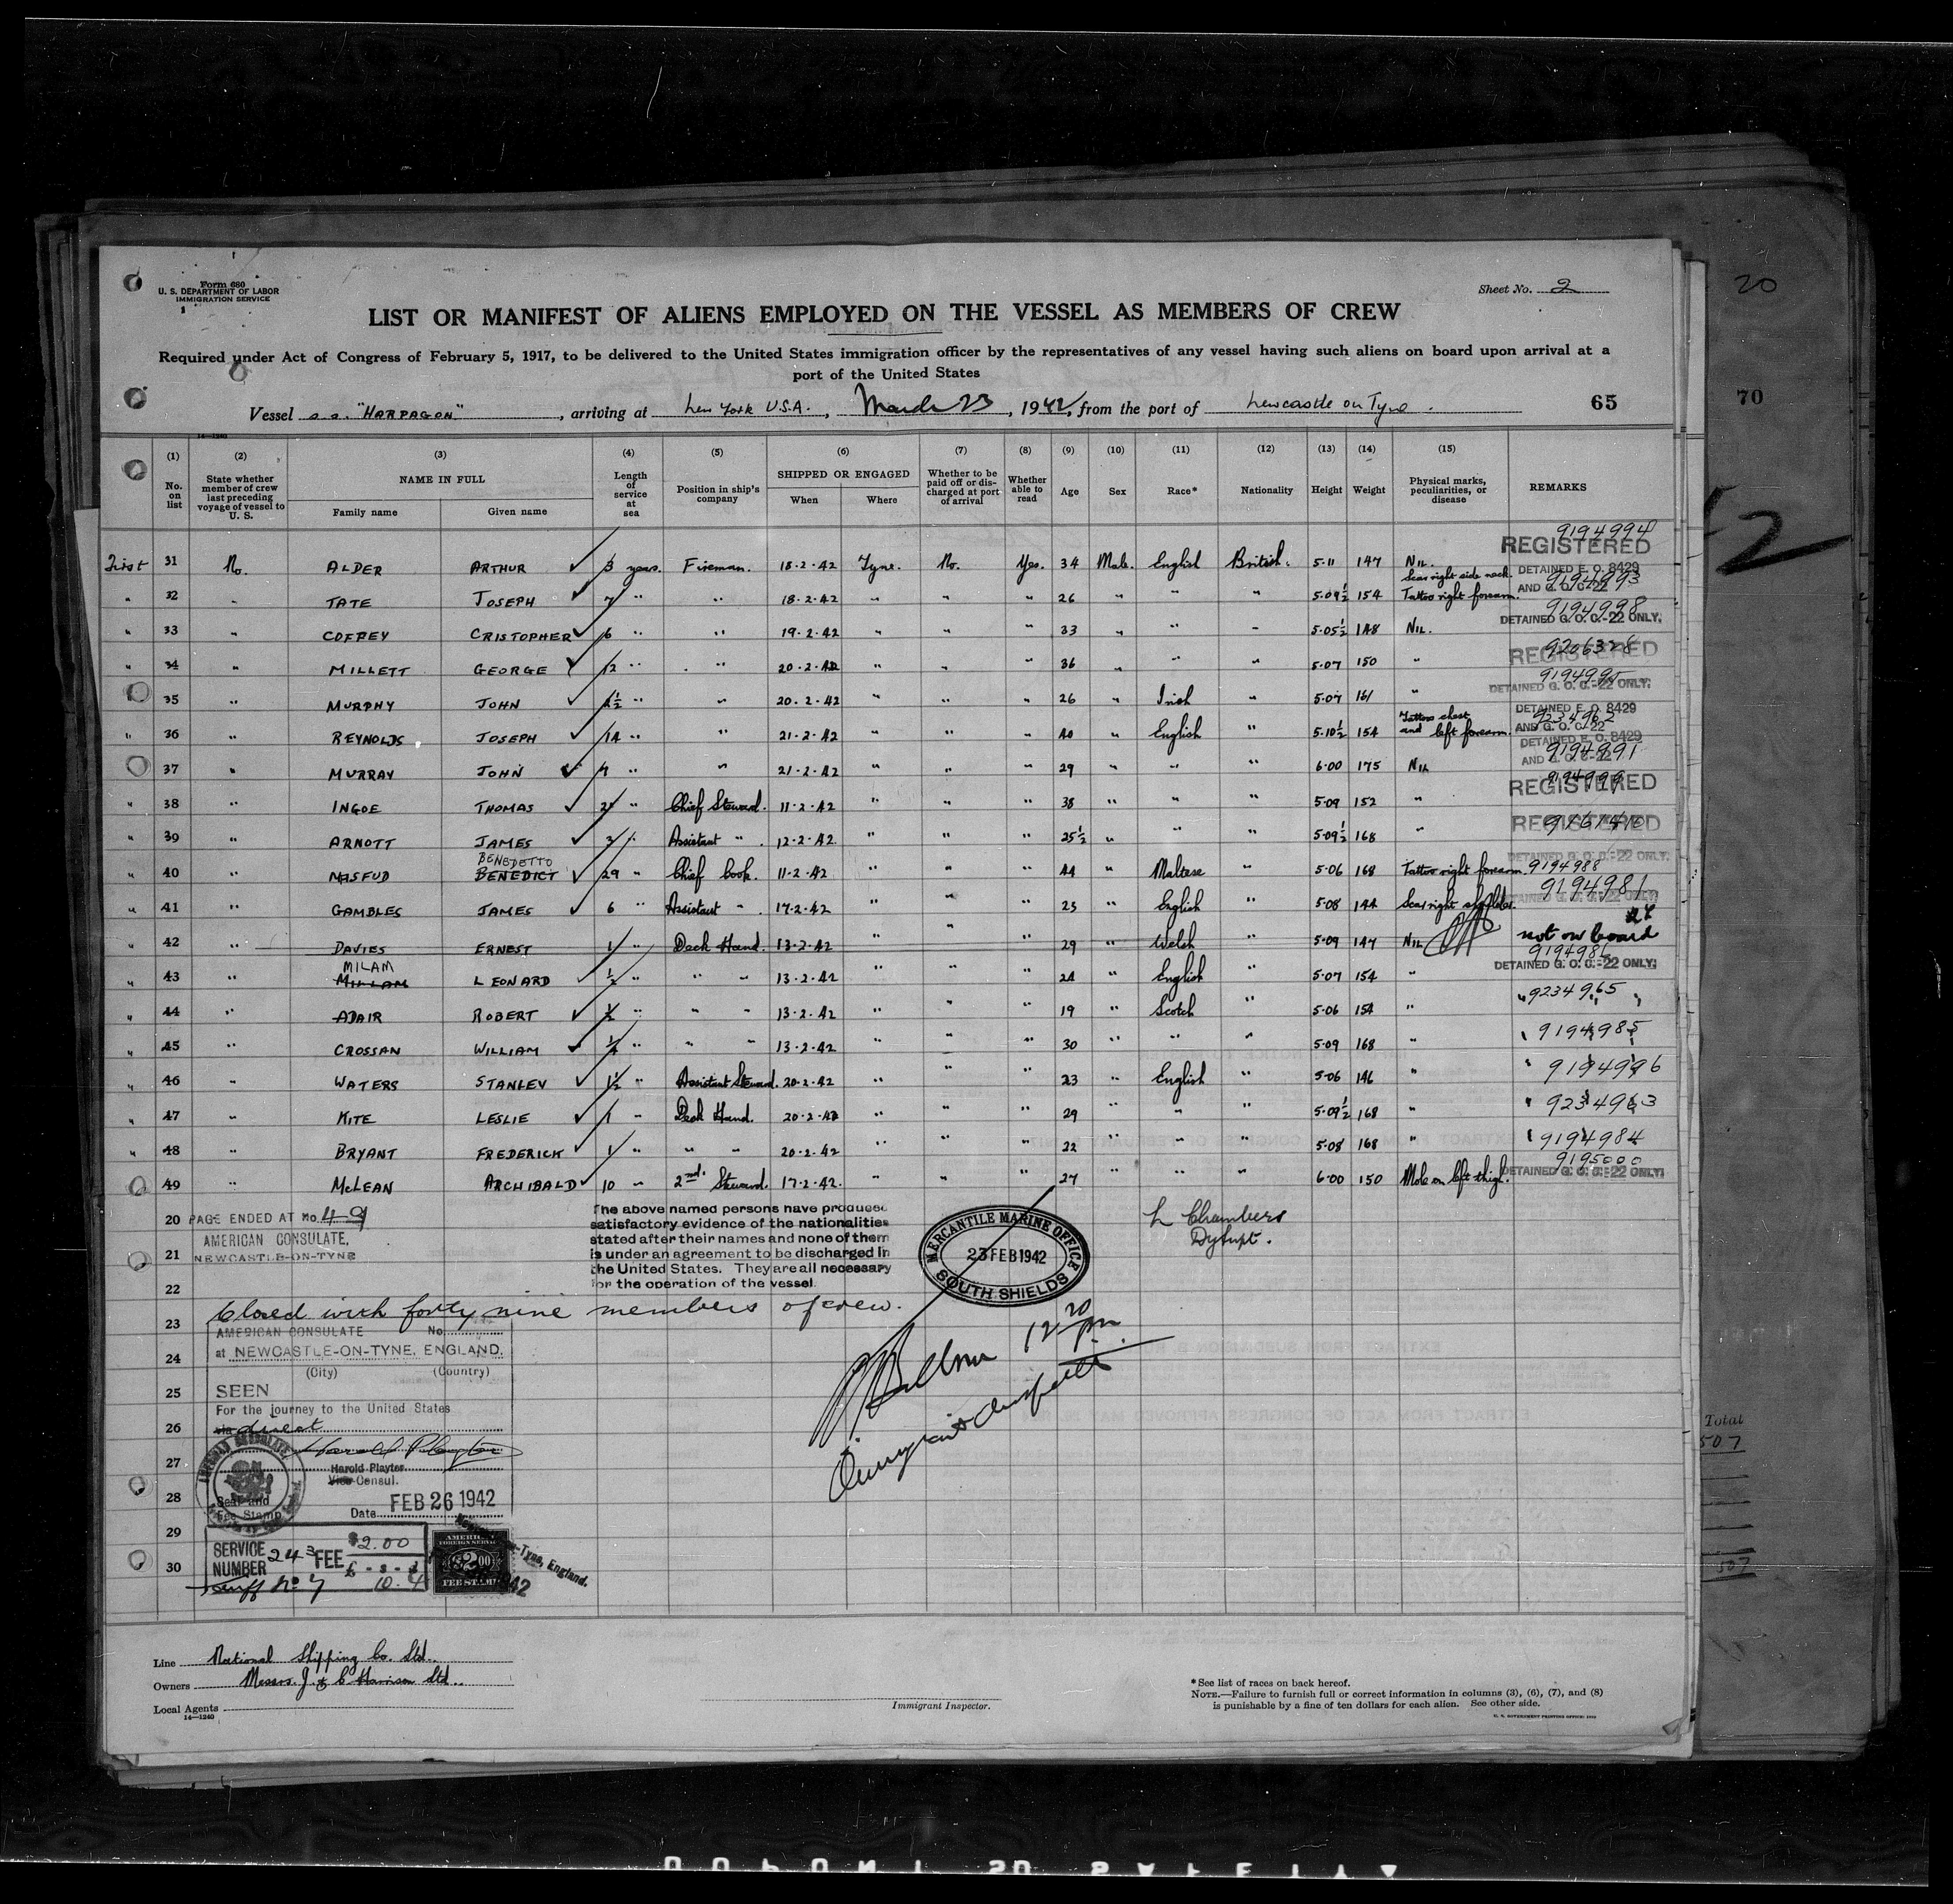 Form 680
U. S. DEPARTMENT OF LABOR
IMMIGRATION SERVICE
Sheet No. 2
20
LIST OR MANIFEST OF ALIENS EMPLOYED ON THE VESSEL AS MEMBERS OF CREW
Required under Act of Congress of February 5, 1917, to be delivered to the United States immigration officer by the representatives of any vessel having such aliens on board upon arrival at a
port of the United States
Vessel s.s. "HARPAGON", arriving at New York U.S.A., March 23, 1942, from the port of Newcastle on Tyne. 65
70
14—1240
(1) (2) (3) (4) (5) (6) (7) (8) (9) (10) (11) (12) (13) (14) (15)
No. on list State whether member of crew last preceding voyage of vessel to U. S. NAME IN FULL Family name Given name Length of service at sea Position in ship's company SHIPPED OR ENGAGED When Where Whether to be paid off or discharged at port of arrival Whether able to read Age Sex Race* Nationality Height Weight Physical marks, peculiarities, or disease REMARKS
First 31 No. ALDER ARTHUR ✓ 3 years. Fireman. 18-2-42 Tyne. No. Yes. 34 Male. English British. 5-11 147 NIL. 9194994 REGISTERED
" 32 " TATE JOSEPH ✓ 7 " " 18-2-42 " " " 26 " " " 5-09½ 154 Scar right side neck. Tattoo right forearm. DETAINED E. O. 8429 AND G. O. C-22 9194993
" 33 " COFFEY CRISTOPHER ✓ 6 " " 19-2-42 " " " 33 " " " 5-05½ 148 NIL. 9194998 DETAINED G. O. C.-22 ONLY.
" 34 " MILLETT GEORGE ✓ 12 " " 20-2-42 " " " 36 " " " 5-07 150 " 9206328 REGISTERED
" 35 " MURPHY JOHN ✓ 1½ " " 20-2-42 " " " 26 " Irish " 5-07 161 " 9194995 DETAINED G. O. C.-22 ONLY.
" 36 " REYNOLDS JOSEPH ✓ 14 " " 21-2-42 " " " 40 " English " 5-10½ 154 Tattoo chest and left forearm. DETAINED E. O. 8429 AND G. O. C-22 9234962
" 37 " MURRAY JOHN ✓ 7 " " 21-2-42 " " " 29 " " " 6-00 175 NIL DETAINED E. O. 8429 AND G. O. C-22 9194991
" 38 " INGOE THOMAS ✓ " Chief Steward. 11-2-42 " " " 38 " " " 5-09 152 " REGISTERED
" 39 " ARNOTT JAMES ✓ 3 " Assistant " . 12-2-42 " " " 25½ " " " 5-09½ 168 " REGISTERED
" 40 " MISFUD BENEDETTO BENEDICT ✓ 29 " Chief Cook. 11-2-42 " " " 44 " Maltese " 5-06 168 Tattoo right forearm. DETAINED G. O. C.-22 ONLY. 9194988
" 41 " GAMBLES JAMES ✓ 6 " Assistant " . 17-2-42 " " " 23 " English " 5-08 144 Scar right shoulder. 9194981 DETAINED G. O. C.-22 ONLY
" 42 " DAVIES ERNEST 1 " Deck Hand. 13-2-42 " " " 29 " Welsh " 5-09 147 NIL not on board
" 43 " MILAM MILLAM LEONARD ✓ ½ " " " 13-2-42 " " " 24 " English " 5-07 154 " DETAINED G. O. C.-22 ONLY.
" 44 " ADAIR ROBERT ✓ ½ " " " 13-2-42 " " " 19 " Scotch " 5-06 154 " " 9234965 "
" 45 " CROSSAN WILLIAM ✓ ¼ " " " 13-2-42 " " " 30 " " " 5-09 168 " " 9194985
" 46 " WATERS STANLEY ✓ 1½ " Assistant Steward. 20-2-42 " " " 23 " English " 5-06 146 " " 9194996
" 47 " KITE LESLIE ✓ 1 " Deck Hand. 20-2-42 " " " 29 " " " 5-09½ 168 " " 9234963
" 48 " BRYANT FREDERICK ✓ 1 " " " 20-2-42 " " " 22 " " " 5-08 168 " " 9194984
" 49 " McLEAN ARCHIBALD ✓ 10 " 2nd. Steward. 17-2-42. " " " 27 " " " 6-00 150 Mole on left thigh. 9195000 DETAINED G. O. C.-22 ONLY.
20 PAGE ENDED AT No. 49
AMERICAN CONSULATE,
NEWCASTLE-ON-TYNE
21
The above named persons have produced
satisfactory evidence of the nationalities
stated after their names and none of them
is under an agreement to be discharged in
the United States. They are all necessary
for the operation of the vessel.
MERCANTILE MARINE OFFICE
23 FEB 1942
SOUTH SHIELDS
L Chambers
Dy Supt.
22
Closed with forty nine members of crew.
23
AMERICAN CONSULATE No.
at NEWCASTLE-ON-TYNE, ENGLAND.
(City) (Country)
24
25
SEEN
For the journey to the United States
26
via direct
27
Harold Playter
Harold Playter
Vice Consul.
28
Seal and
Fee Stamp
Date FEB 26 1942
12 20 pm
Immigrant Inspector
29
SERVICE NUMBER 243 FEE $2.00
£ - s - d
10. 4
Tariff No 7
30
AMERICAN FOREIGN SERVICE
$2.00
FEE STAMP
Newcastle-on-Tyne, England.
Total
507
507
Line National Shipping Co. Ltd..
Owners Messrs. J. & C Harrison Ltd..
Local Agents
14—1240
Immigrant Inspector.
*See list of races on back hereof.
NOTE.—Failure to furnish full or correct information in columns (3), (6), (7), and (8)
is punishable by a fine of ten dollars for each alien. See other side.
U. S. GOVERNMENT PRINTING OFFICE